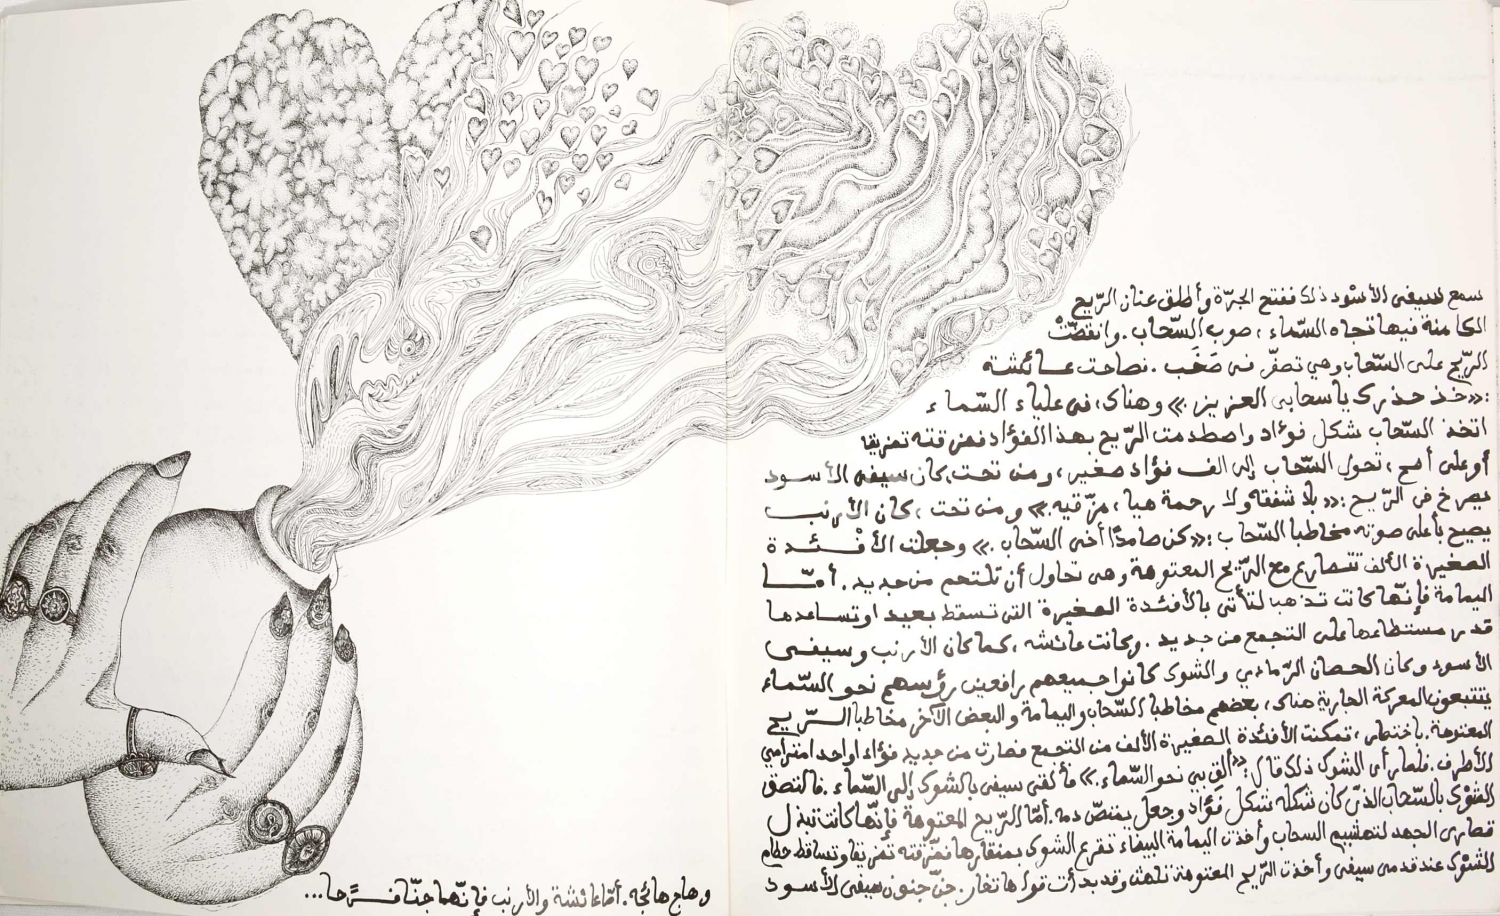 سمع سيفي الأسْود ذلك ففتح الجرّة وأطلق عنان الرّيح
الكامنة فيها تجاه السّماء، صوب السّحاب. وانقضّتْ
الرّيح على السّحاب وهي تصفّر في صَخَب. فصاحت عائشة
:«خذ حذرك يا سحابي العزيز.» وهناك، في علياء السّماء
اتخذ السّحاب شكل فؤاد واصطدمت الرّيح بهذا الفؤاد فمزقته تمزيقا
أو على أصح، تحول السّحاب إلى الف فؤاد صغير، ومن تحت، كان سيفي الأسود
يصرخ في الرّيح :«بلا شفقه ولا رحمة هيا، مزّقيه.» ومن تحت، كان الأرنب
يصيح بأعلى صوته مخاطبا السّحاب :«كن صامدًا أخي السّحاب.» وجعلت الأفْـئدة
الصغيرة الألف تتصارع مع الرّيح المعتوهة وهي تحاول أن تلتحم من جديد. أمّا
اليمامة فإنّها كانت تذهب لتأتي بالأفئدة الصغيرة التي تسقط بعيدا وتساعدها
قدر مستطاعها على التجمع من جديد. وكانت عائشه، كما كان الأرنب وسيفي
الأسود وكان الحصان الرّمادي والشوك كانوا جميعهم رافعين رؤسهم نحو السّماء
يتتبعون المعركة الجارية هناك، بعضهم مخاطبا السّحاب واليمامة والبعض الآخر مخاطبا الرّيح
المعتوهة. باختصار، تمكنت الأفئدة الصغيرة الألف من التجمع فصارت من جديد فؤادا واحدا مترامي
الأطرف. فلما رأى الشوك ذلك قال :«ألقِ بي نحو السّماء.» فألقى سيفي بالشوك إلى السّماء. فالتصق
الشوْك بالسّحاب الذيّ كان شكله شكل فؤاد وجعل يمتصّ دمه. أمّا الرّيح المعتوهة فإنّها كانت تبذل
قصارى الجهد لتهشيم السحاب وأخذت اليمامة البيضاء تقرع الشوك بمنقارها فمزّقته تمزيقا وتساقط حطام
الشوْك عند قدمي سيفي وأخذت الرّيح المعتوهة تلهث وقد بدأت قواها تغار. جنّ جنون سيفي الأسود
وهاج هائجه. أمّا عائشة والأرنب فإنّهما جنّا فـرًحا...